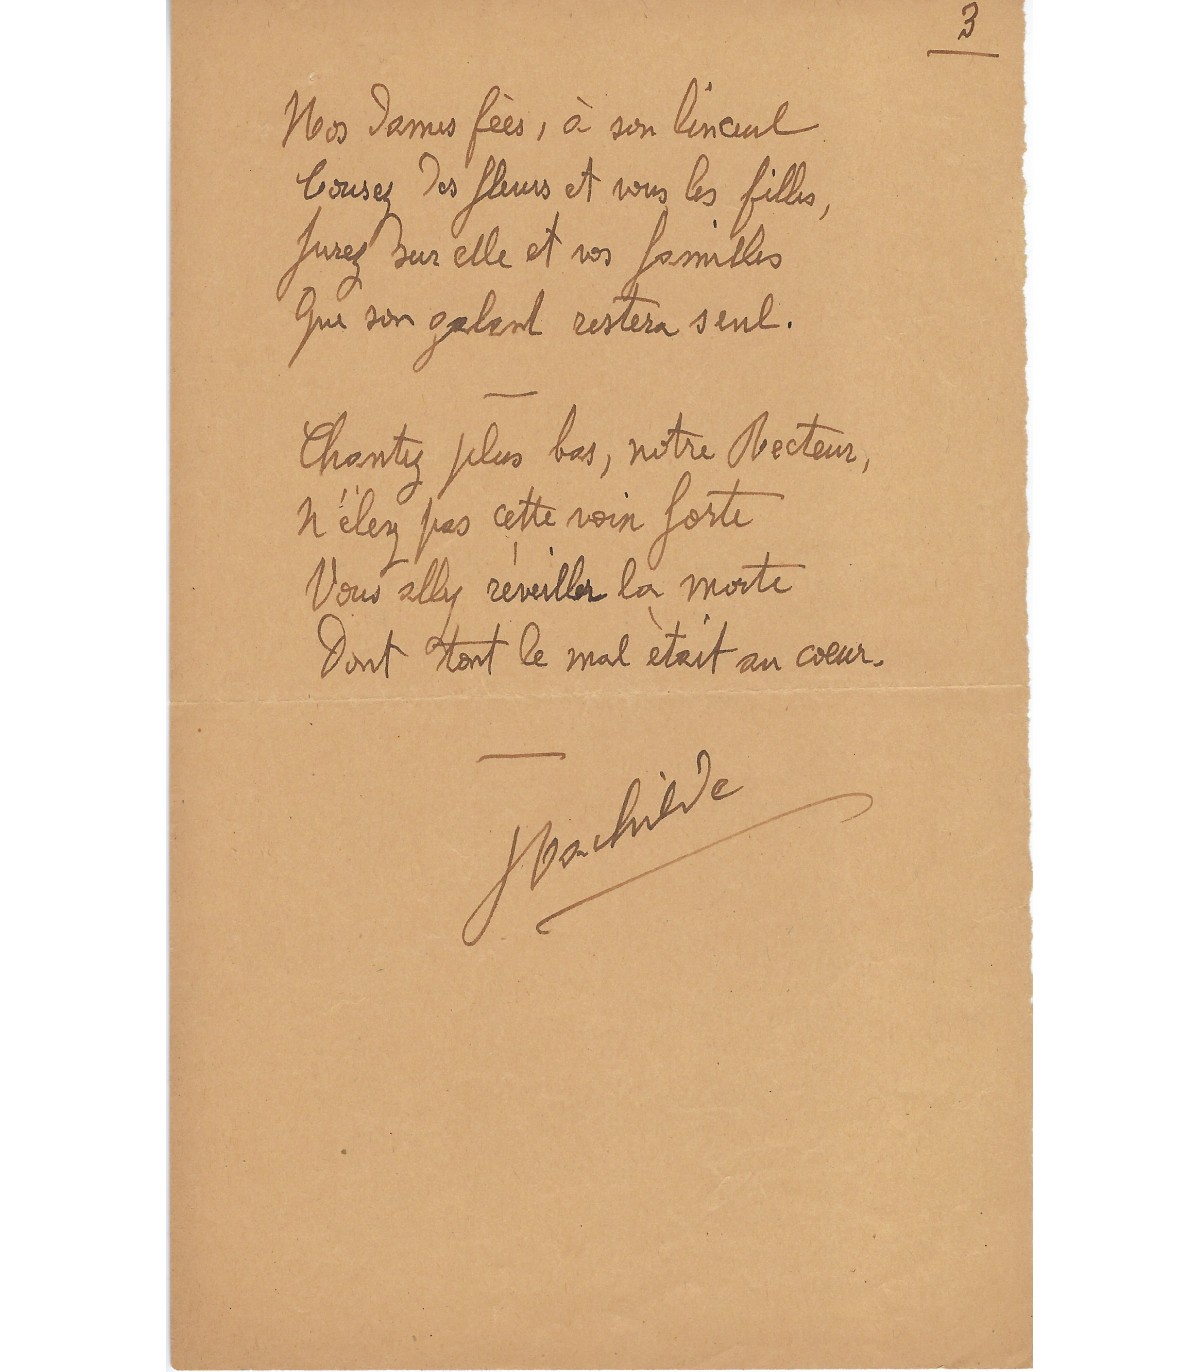 3
Nos dames fées, à son linceul
Cousez des fleurs et vous les filles,
Jurez sur elle et vos familles
Que son galant restera seul.
Chantez plus bas, notre Recteur,
N'élevez pas cette voix forte
Vous allez réveiller la morte
Dont tout le mal était au coeur.
Rachilde